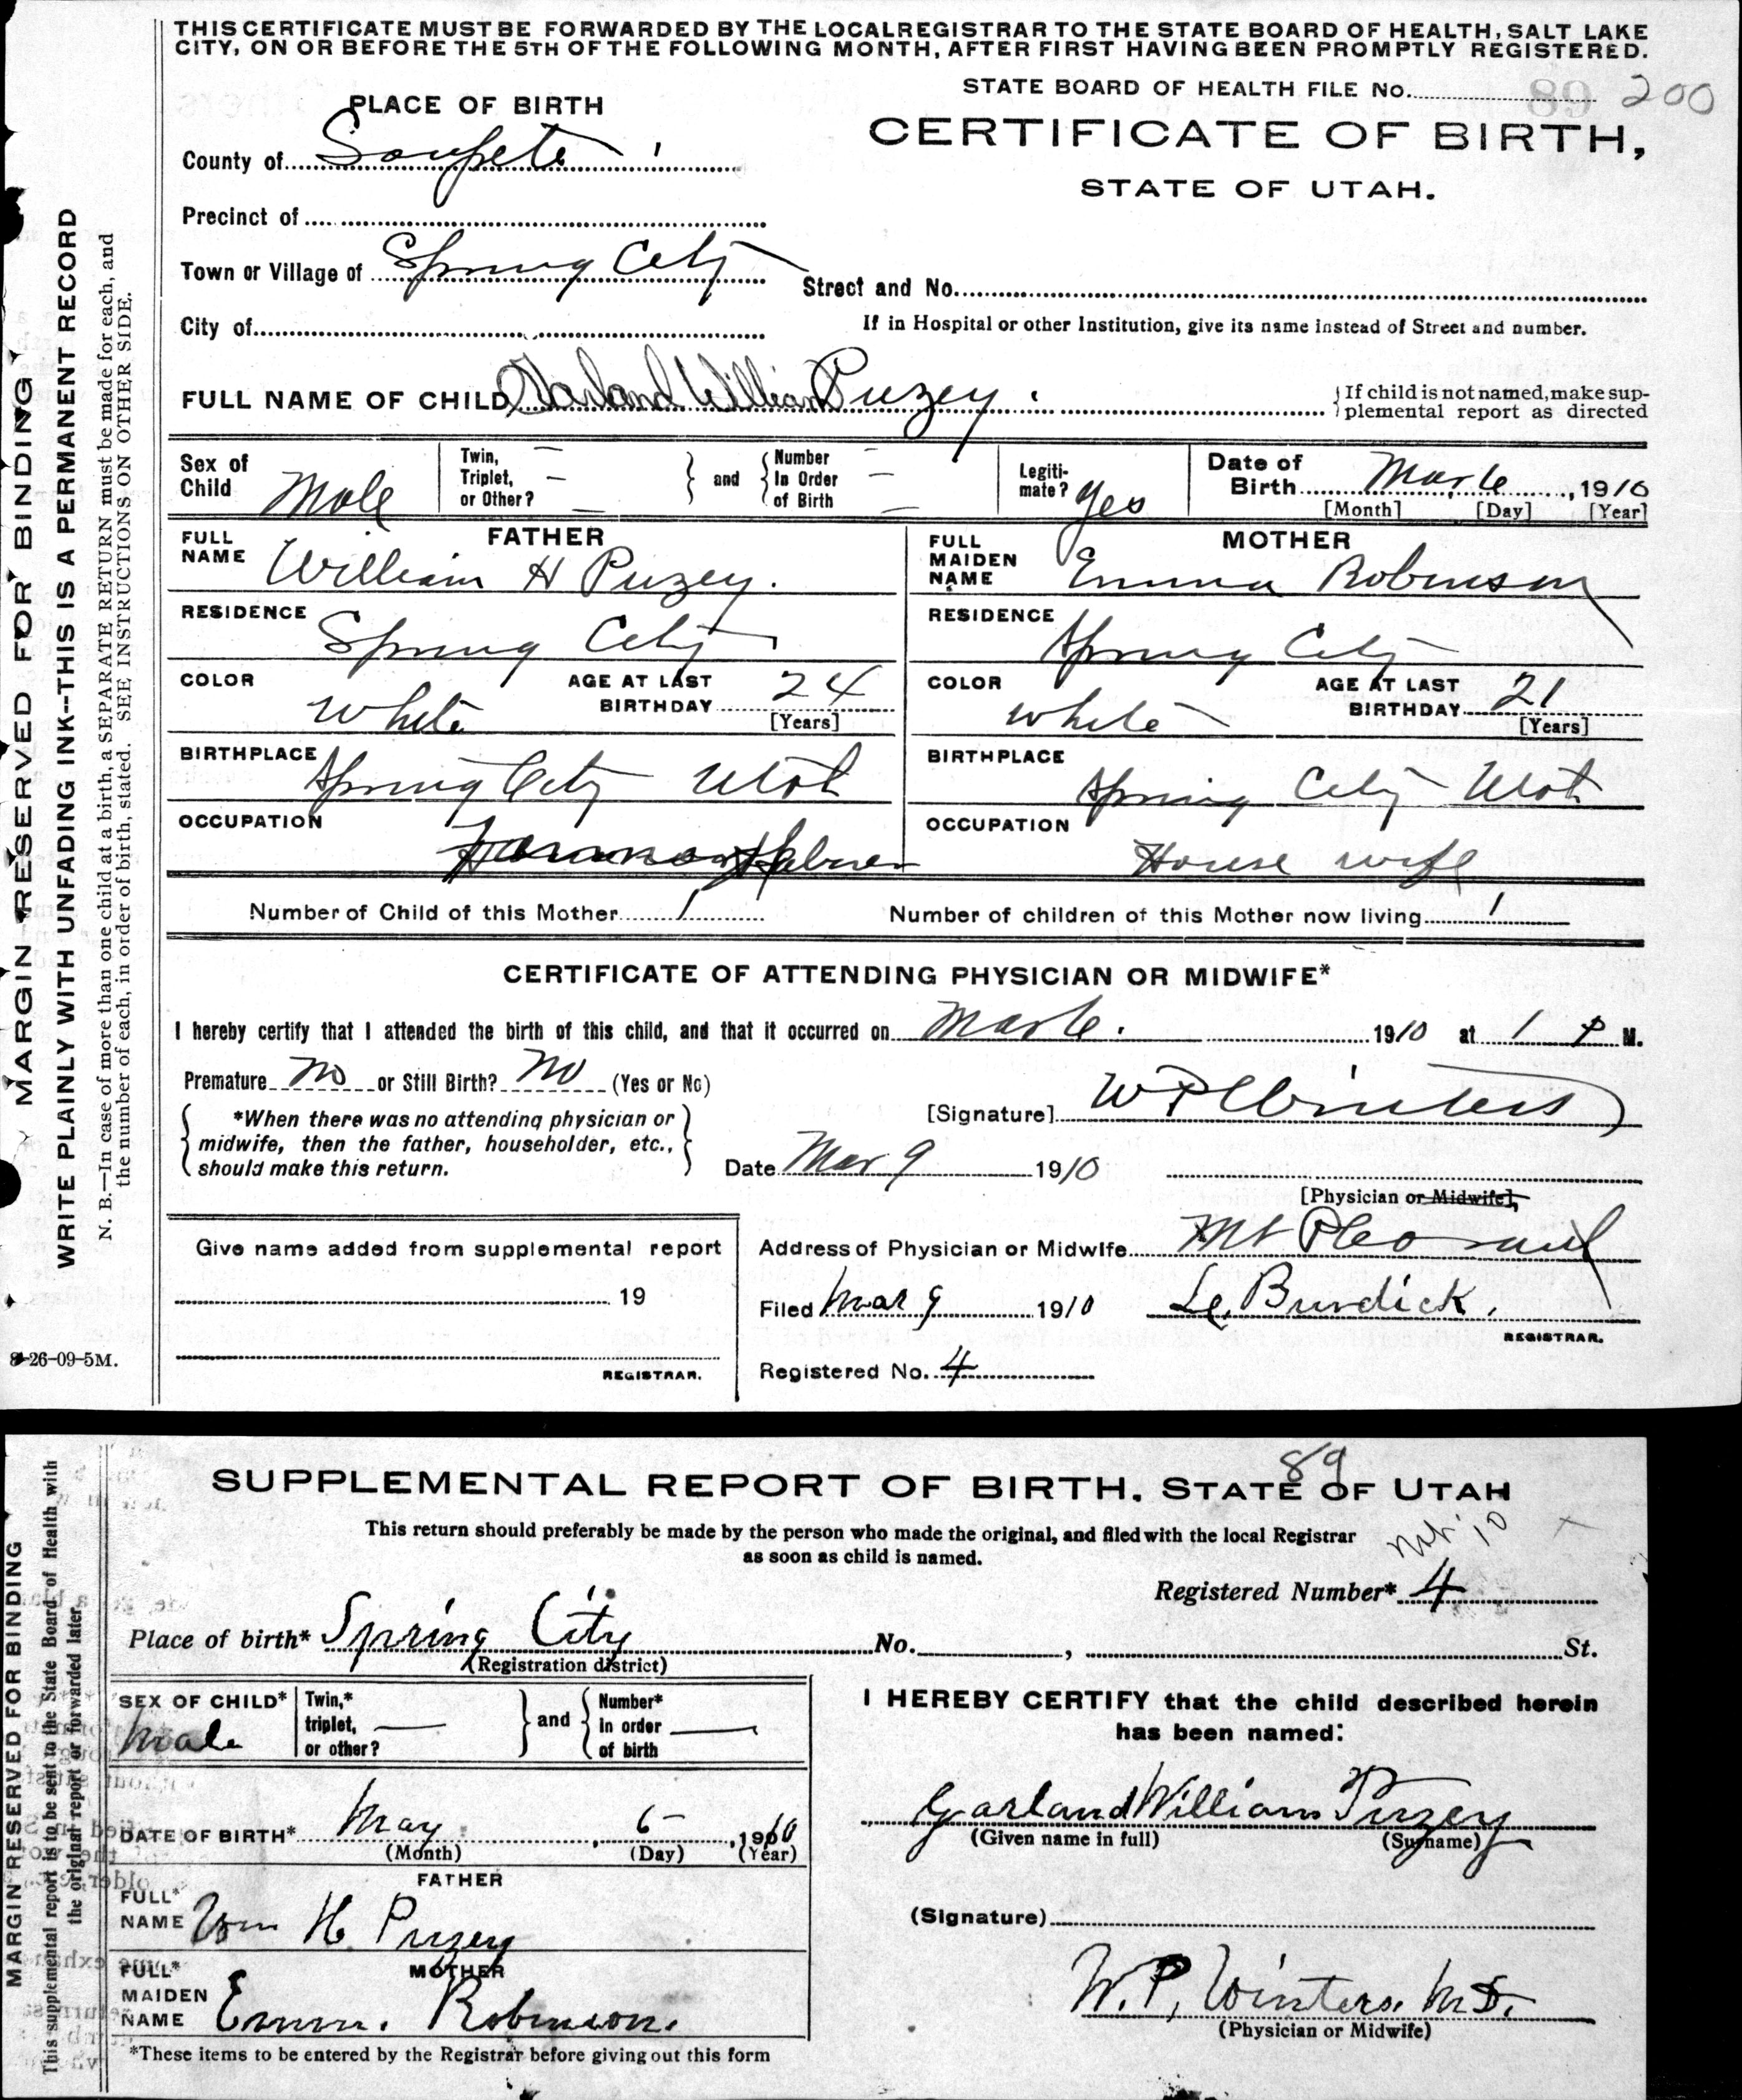 THIS CERTIFICATE MUST BE FORWARDED BY THE LOCAL REGISTRAR TO THE STATE BOARD OF HEALTH, SALT LAKE
CITY, ON OR BEFORE THE 5TH OF THE FOLLOWING MONTH, AFTER FIRST HAVING BEEN PROMPTLY REGISTERED.
STATE BOARD OF HEALTH FILE No. 89 200
PLACE OF BIRTH
CERTIFICATE OF BIRTH,
County of Sanpete
STATE OF UTAH.
Precinct of
Town or Village of Spring City
Street and No.
City of
If in Hospital or other Institution, give its name instead of Street and number.
FULL NAME OF CHILD Garland William Puzey.
{If child is not named, make sup-
plemental report as directed
Sex of Child Male
Twin, Triplet, or Other? —
and
Number In Order of Birth —
Legiti-mate? Yes
Date of Birth Mar 6, 1910
[Month] [Day] [Year]
FATHER
FULL NAME William H Puzey.
MOTHER
FULL MAIDEN NAME Emma Robinson
RESIDENCE Spring City
RESIDENCE Spring City
COLOR White AGE AT LAST BIRTHDAY 24 [Years]
COLOR White AGE AT LAST BIRTHDAY 21 [Years]
BIRTHPLACE Spring City Utah
BIRTHPLACE Spring City Utah
OCCUPATION
OCCUPATION House wife
Number of Child of this Mother 1
Number of children of this Mother now living 1
CERTIFICATE OF ATTENDING PHYSICIAN OR MIDWIFE*
I hereby certify that I attended the birth of this child, and that it occurred on Mar 6. 1910 at 1 P M.
Premature no or Still Birth? no (Yes or No)
{ *When there was no attending physician or
midwife, then the father, householder, etc.,
should make this return. }
[Signature] W P Winters
Date Mar 9 1910
[Physician or Midwife],
Address of Physician or Midwife Mt Pleasant
Filed Mar 9 1910 Burdick.
REGISTRAR.
Registered No. 4
Give name added from supplemental report
19
REGISTRAR.
MARGIN RESERVED FOR BINDING
WRITE PLAINLY WITH UNFADING INK--THIS IS A PERMANENT RECORD
N. B.—In case of more than one child at a birth, a SEPARATE RETURN must be made for each, and
the number of each, in order of birth, stated. SEE INSTRUCTIONS ON OTHER SIDE.
8-26-09-5M.
89
SUPPLEMENTAL REPORT OF BIRTH, STATE OF UTAH
This return should preferably be made by the person who made the original, and filed with the local Registrar
as soon as child is named.
10
Registered Number* 4
Place of birth* Spring City No. , St.
(Registration district)
SEX OF CHILD* Male
Twin,* triplet, or other? —
and
Number* In order of birth —
I HEREBY CERTIFY that the child described herein
has been named:
DATE OF BIRTH* May 6, 1910
(Month) (Day) (Year)
Garland William Puzey
(Given name in full) (Surname)
FATHER
FULL* NAME Wm H. Puzey
(Signature)
MOTHER
FULL* MAIDEN NAME Emm. Robinson.
W. P. Winters. M.D.
(Physician or Midwife)
*These items to be entered by the Registrar before giving out this form
MARGIN RESERVED FOR BINDING
This supplemental report is to be sent to the State Board of Health with
the original report or forwarded later.